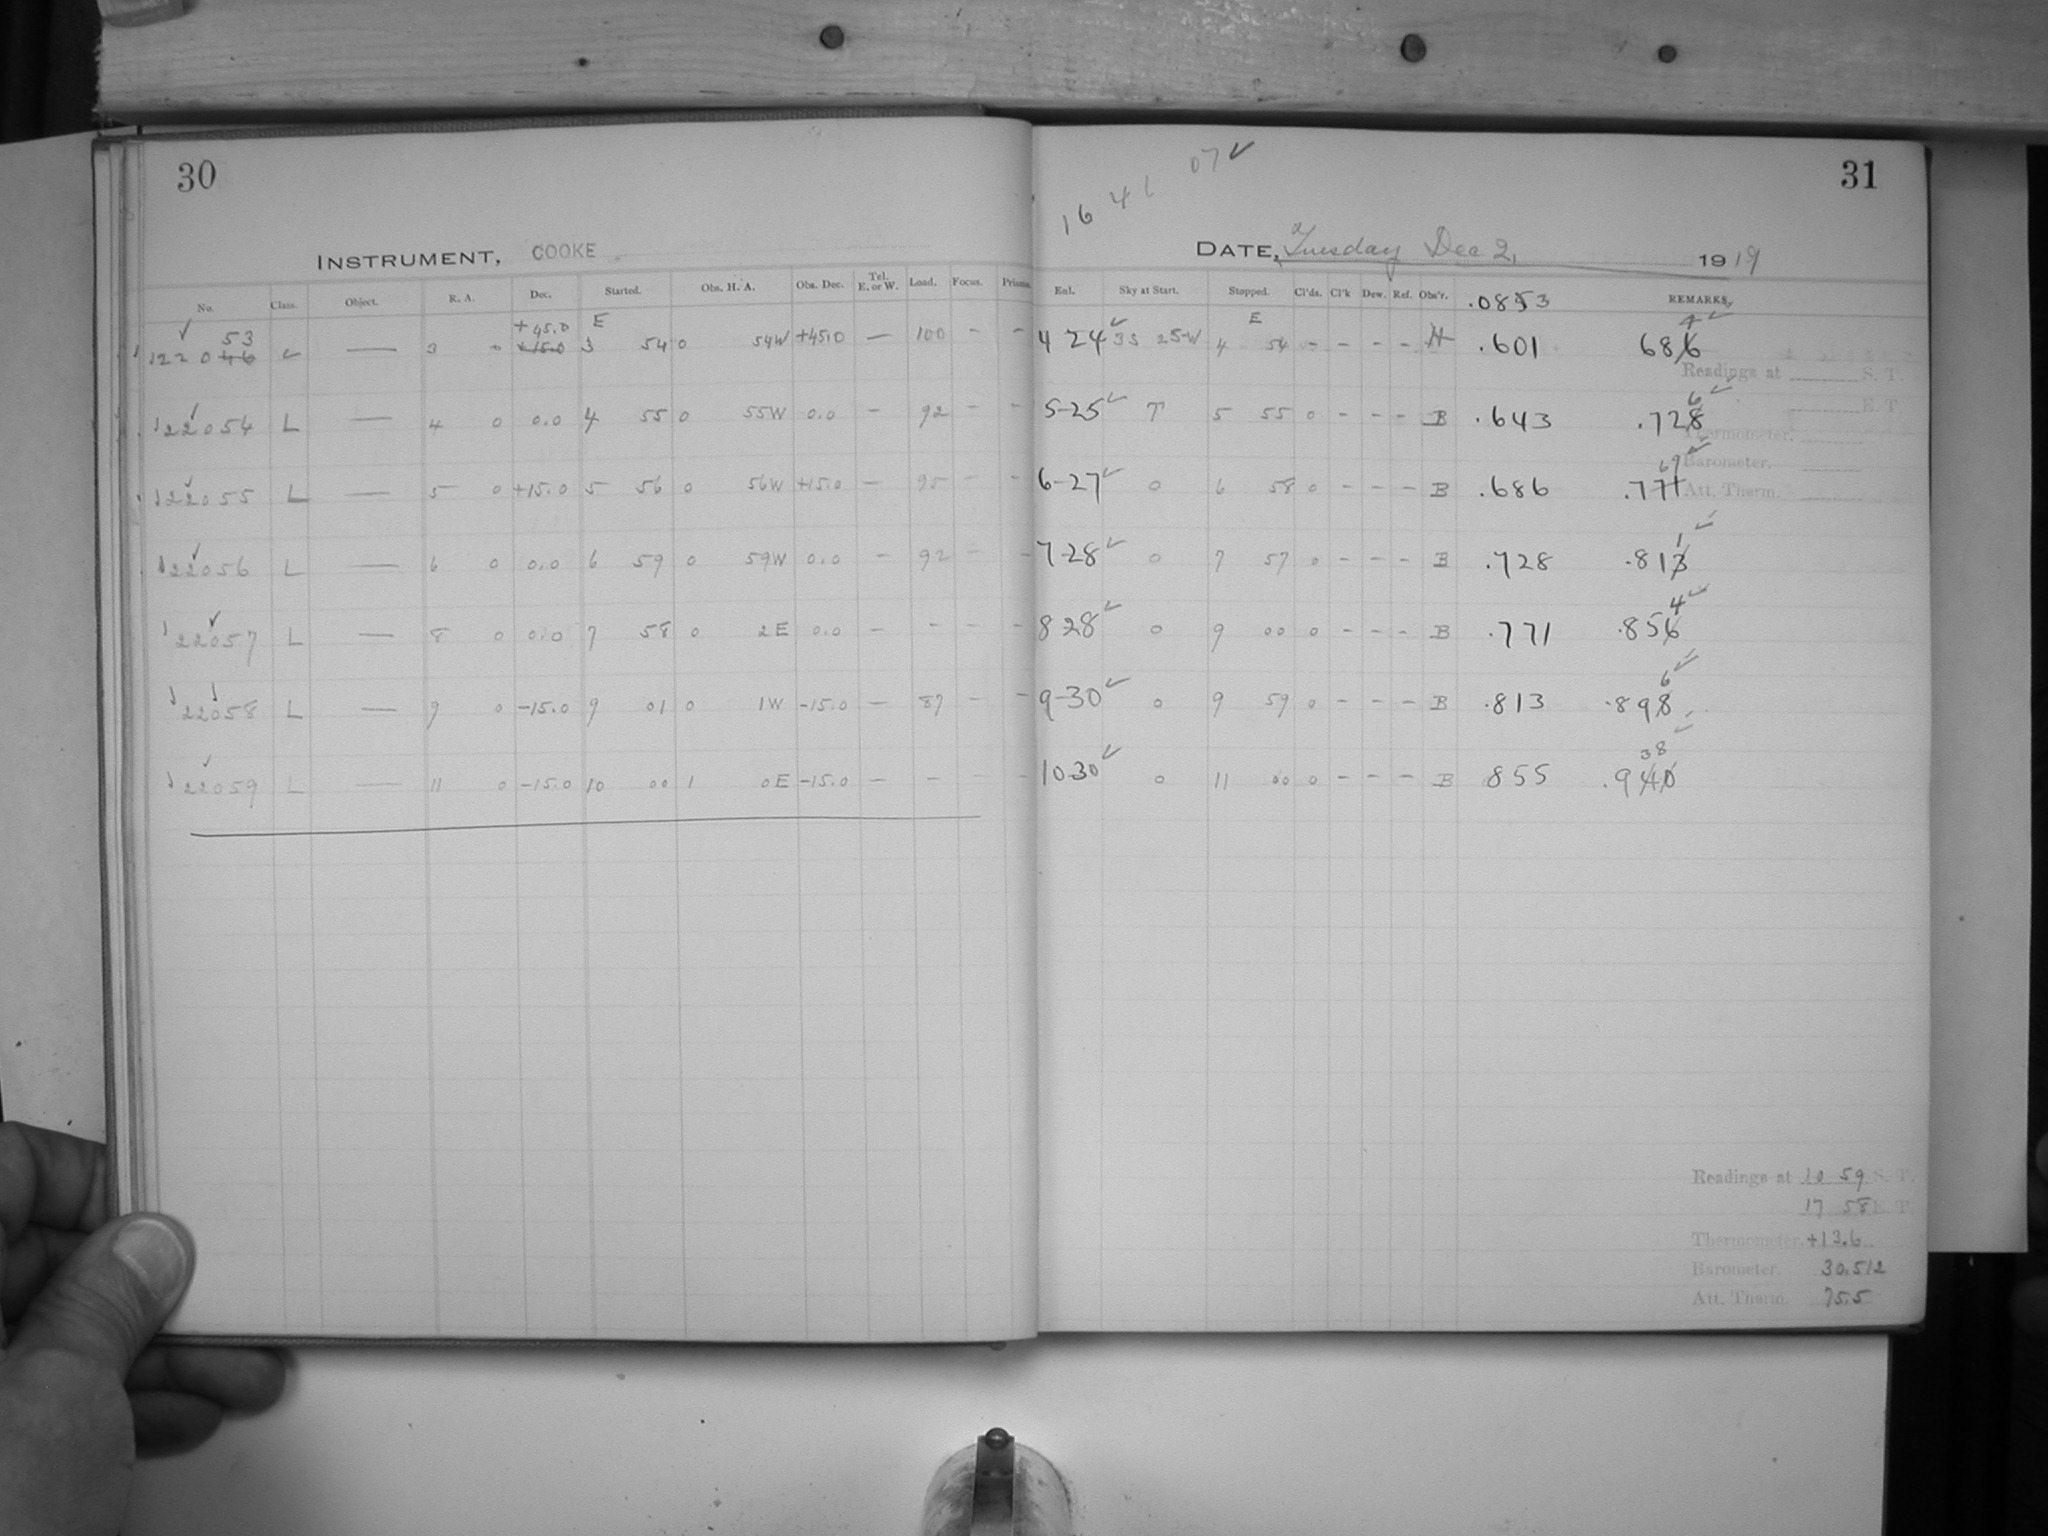 30
INSTRUMENT, COOKE
No. Class. Object. R. A. Dec. Started. Obs. H. A. Obs. Dec. Tel. E. or W. Load. Focus. Prisms.
53 +45.0 E
122046 L — 3 0 +15.0 3 54 0 54W +45.0 — 100 - -
122054 L — 4 0 0.0 4 55 0 55W 0.0 - 92 - -
122055 L — 5 0 +15.0 5 56 0 56W +15.0 - 95 - -
122056 L — 6 0 0.0 6 59 0 59W 0.0 - 92 - -
122057 L — 8 0 0.0 7 58 0 2E 0.0 - - - -
122058 L — 9 0 -15.0 9 01 0 1W -15.0 - 87 - -
122059 L — 11 0 -15.0 10 00 1 0E -15.0 - - - -
31
07 ✓
16 41
DATE, Tuesday Dec 2, 1919
Exl. Sky at Start. Stopped. Cl'ds. Cl'k Dew. Ref. Obs'r. .0853 REMARKS,
E
4 24 ✓ 3S 25-W 4 54 - - - - H .601 686
Readings at S. T.
E. T.
6 ✓
5-25 ✓ T 5 55 0 - - - B .643 .728
Thermometer.
69 ✓ Barometer.
6-27 ✓ 0 6 58 0 - - - B .686 .771 Att. Therm.
1 ✓
7-28 ✓ 0 7 57 0 - - - B .728 .813
4 ✓
8 28 ✓ 0 9 00 0 - - - B .771 .856
6 ✓
9-30 ✓ 0 9 59 0 - - - B .813 .898
38 ✓
10-30 ✓ 0 11 00 0 - - - B 855 .940
Readings at 10 59 S. T.
17 58 E. T.
Thermometer. +13.6
Barometer. 30.512
Att. Therm. 75.5